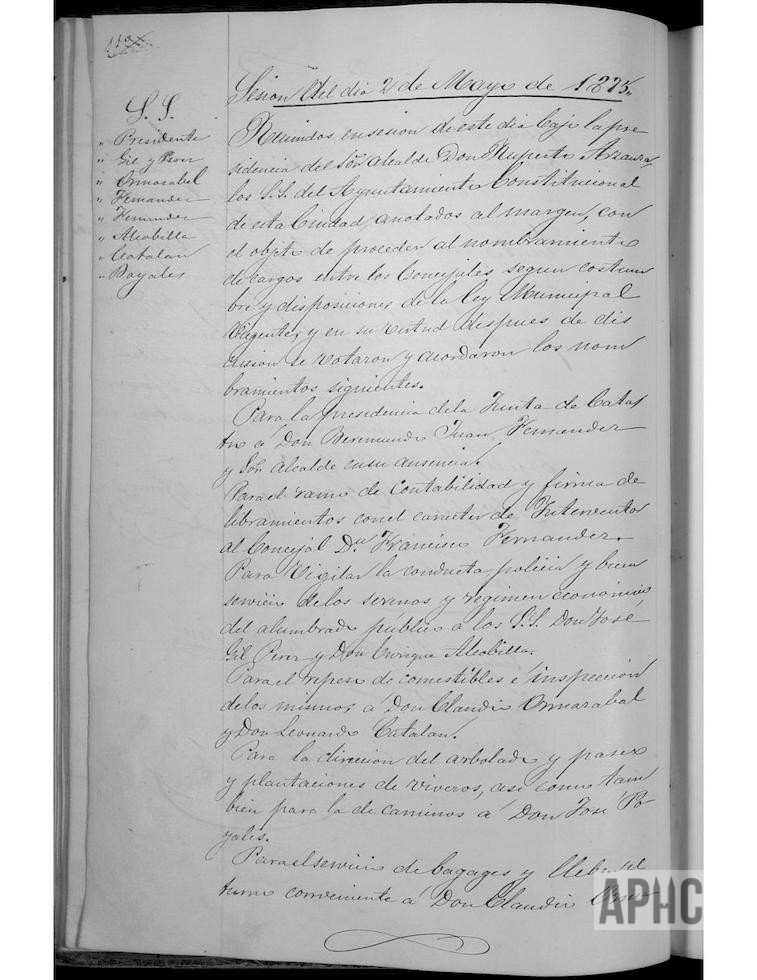 Sesion del dia 2 de Mayo de 1875„
S. S.
„ Presidente
„ Gil y Perez
„ Ormazabal
„ Fernandez
„ Fernandez
„ Alcobilla
„ Catalan
„ Poyales
Reunidos en sesion de este dia bajo la pre
sidencia del Sor. Alcalde Don Ruperto
los S.S. del Ayuntamiento Constitucional
de esta Ciudad, anotados al margen, con
el objeto de proceder al nombramiento
de cargos entre los Concejales segun costum
bre y disposiciones de la ley Municipal
Vigente, y en su virtud despues de dis
cusion se votaron y acordaron los nom
bramientos siguientes.
Para la presidencia de la Junta de Catas
tro a Don Beremundo Juan Fernandez
y Sor. Alcalde en su ausencia.
Para el ramo de Contabilidad y firma de
libramientos con el caracter de Interventor
al Concejal Dn. Francisco Fernandez.
Para Vigilar la conducta, policia y buen
servicio de los serenos y regimen economico
del alumbrado público a los S.S. Don José
Gil Perez y Don Enrique Alcobilla.
Para el repeso de comestibles é inspeccion
de los mismos, a Don Claudio Ormazabal
y Don Leonardo Catalan.
Para la direccion del arbolado y paseos
y plantaciones de viveros, asi como tam
bien para la de caminos a Don José Po
yales.
Para el servicio de bagages y llebar el
turno conveniente a Don Claudio
APHC